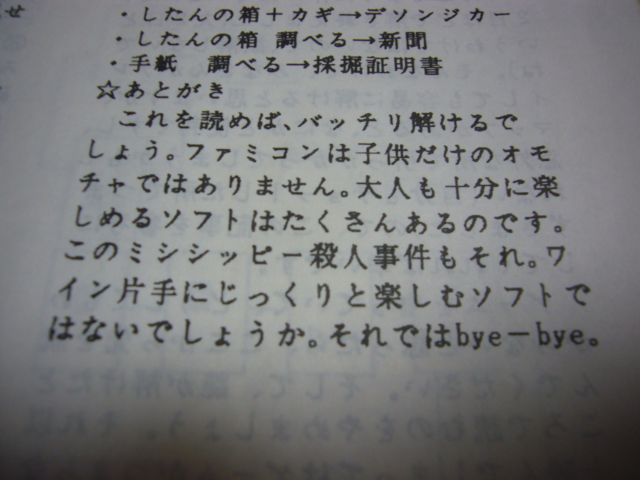 せ
・したんの箱＋カギ→デソンジカー
・したんの箱 調べる→新聞
・手紙 調べる→採掘証明書
☆あとがき
これを読めば、バッチリ解けるで
しょう。ファミコンは子供だけのオモ
チャではありません。大人も十分に楽
しめるソフトはたくさんあるのです。
このミシシッピー殺人事件もそれ。ワ
イン片手にじっくりと楽しむソフトで
はないでしょうか。それではbye－bye。